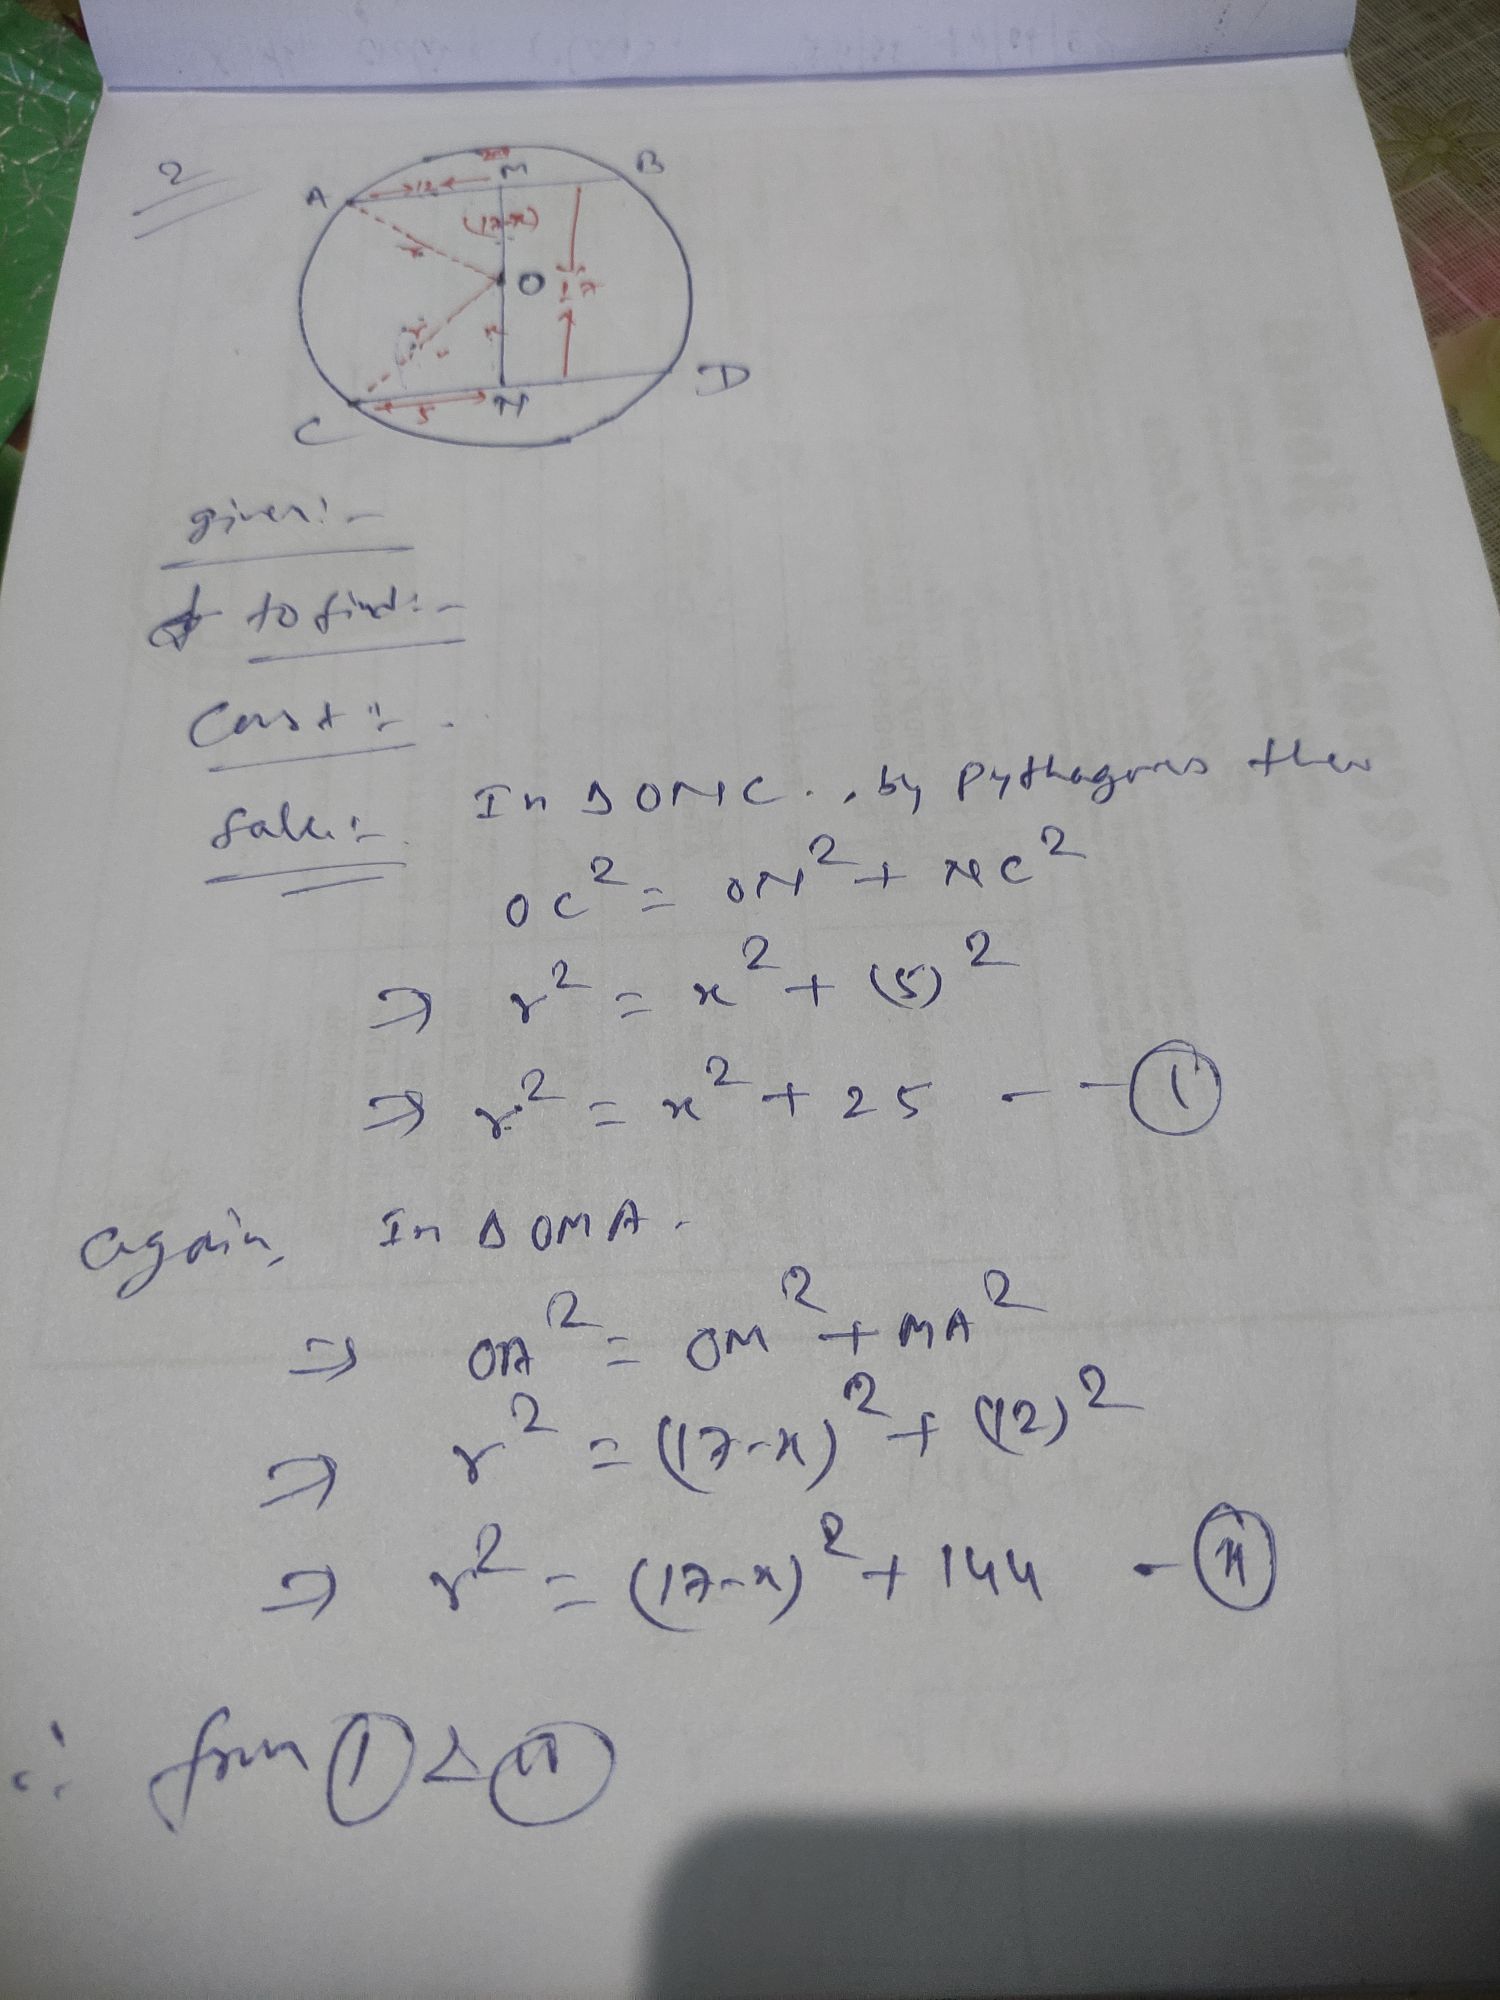 2
A 12 M B
(17-x)
r O 17
r x
C 5 N D
given:-
to find:-
Const:-
Soln:- In Δ ONC, by pythagoras theo
OC² = ON² + NC²
⇒ r² = x² + (5)²
⇒ r² = x² + 25 -- ①
Again, In Δ OMA.
⇒ OA² = OM² + MA²
⇒ r² = (17-x)² + (12)²
⇒ r² = (17-x)² + 144 - ⑪
∴ from ① & ⑪